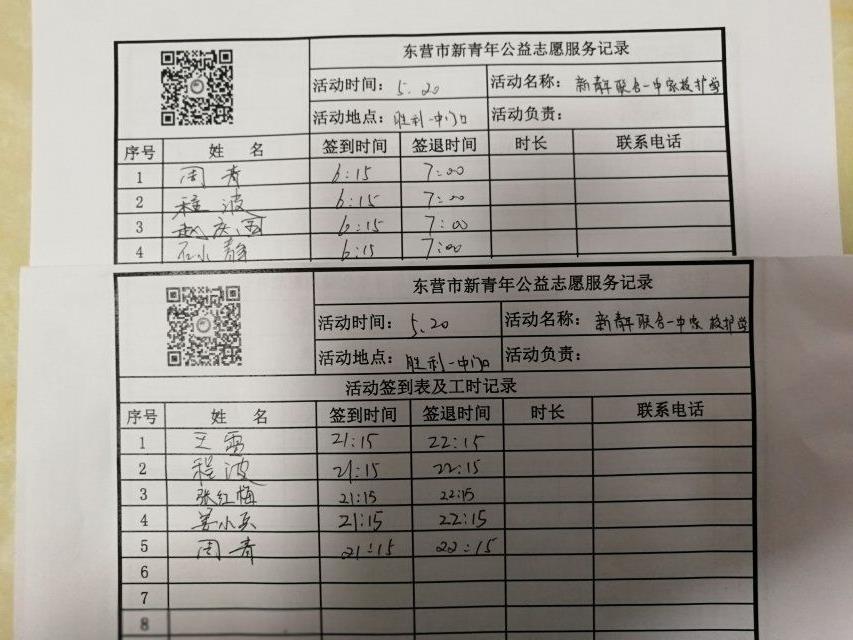 东营市新青年公益志愿服务记录
活动时间: 5.20 活动名称: 新青年联合一中家校护学
活动地点: 胜利一中门口 活动负责:
序号 姓 名 签到时间 签退时间 时长 联系电话
1 周青 6:15 7:00
2 程波 6:15 7:00
3 赵庆国 6:15 7:00
4 石小静 6:15 7:00
东营市新青年公益志愿服务记录
活动时间: 5.20 活动名称: 新青年联合一中家校护学
活动地点: 胜利一中门口 活动负责:
活动签到表及工时记录
序号 姓 名 签到时间 签退时间 时长 联系电话
1 王雷 21:15 22:15
2 程波 21:15 22:15
3 张红梅 21:15 22:15
4 小兵 21:15 22:15
5 周青 21:15 22:15
6
7
8